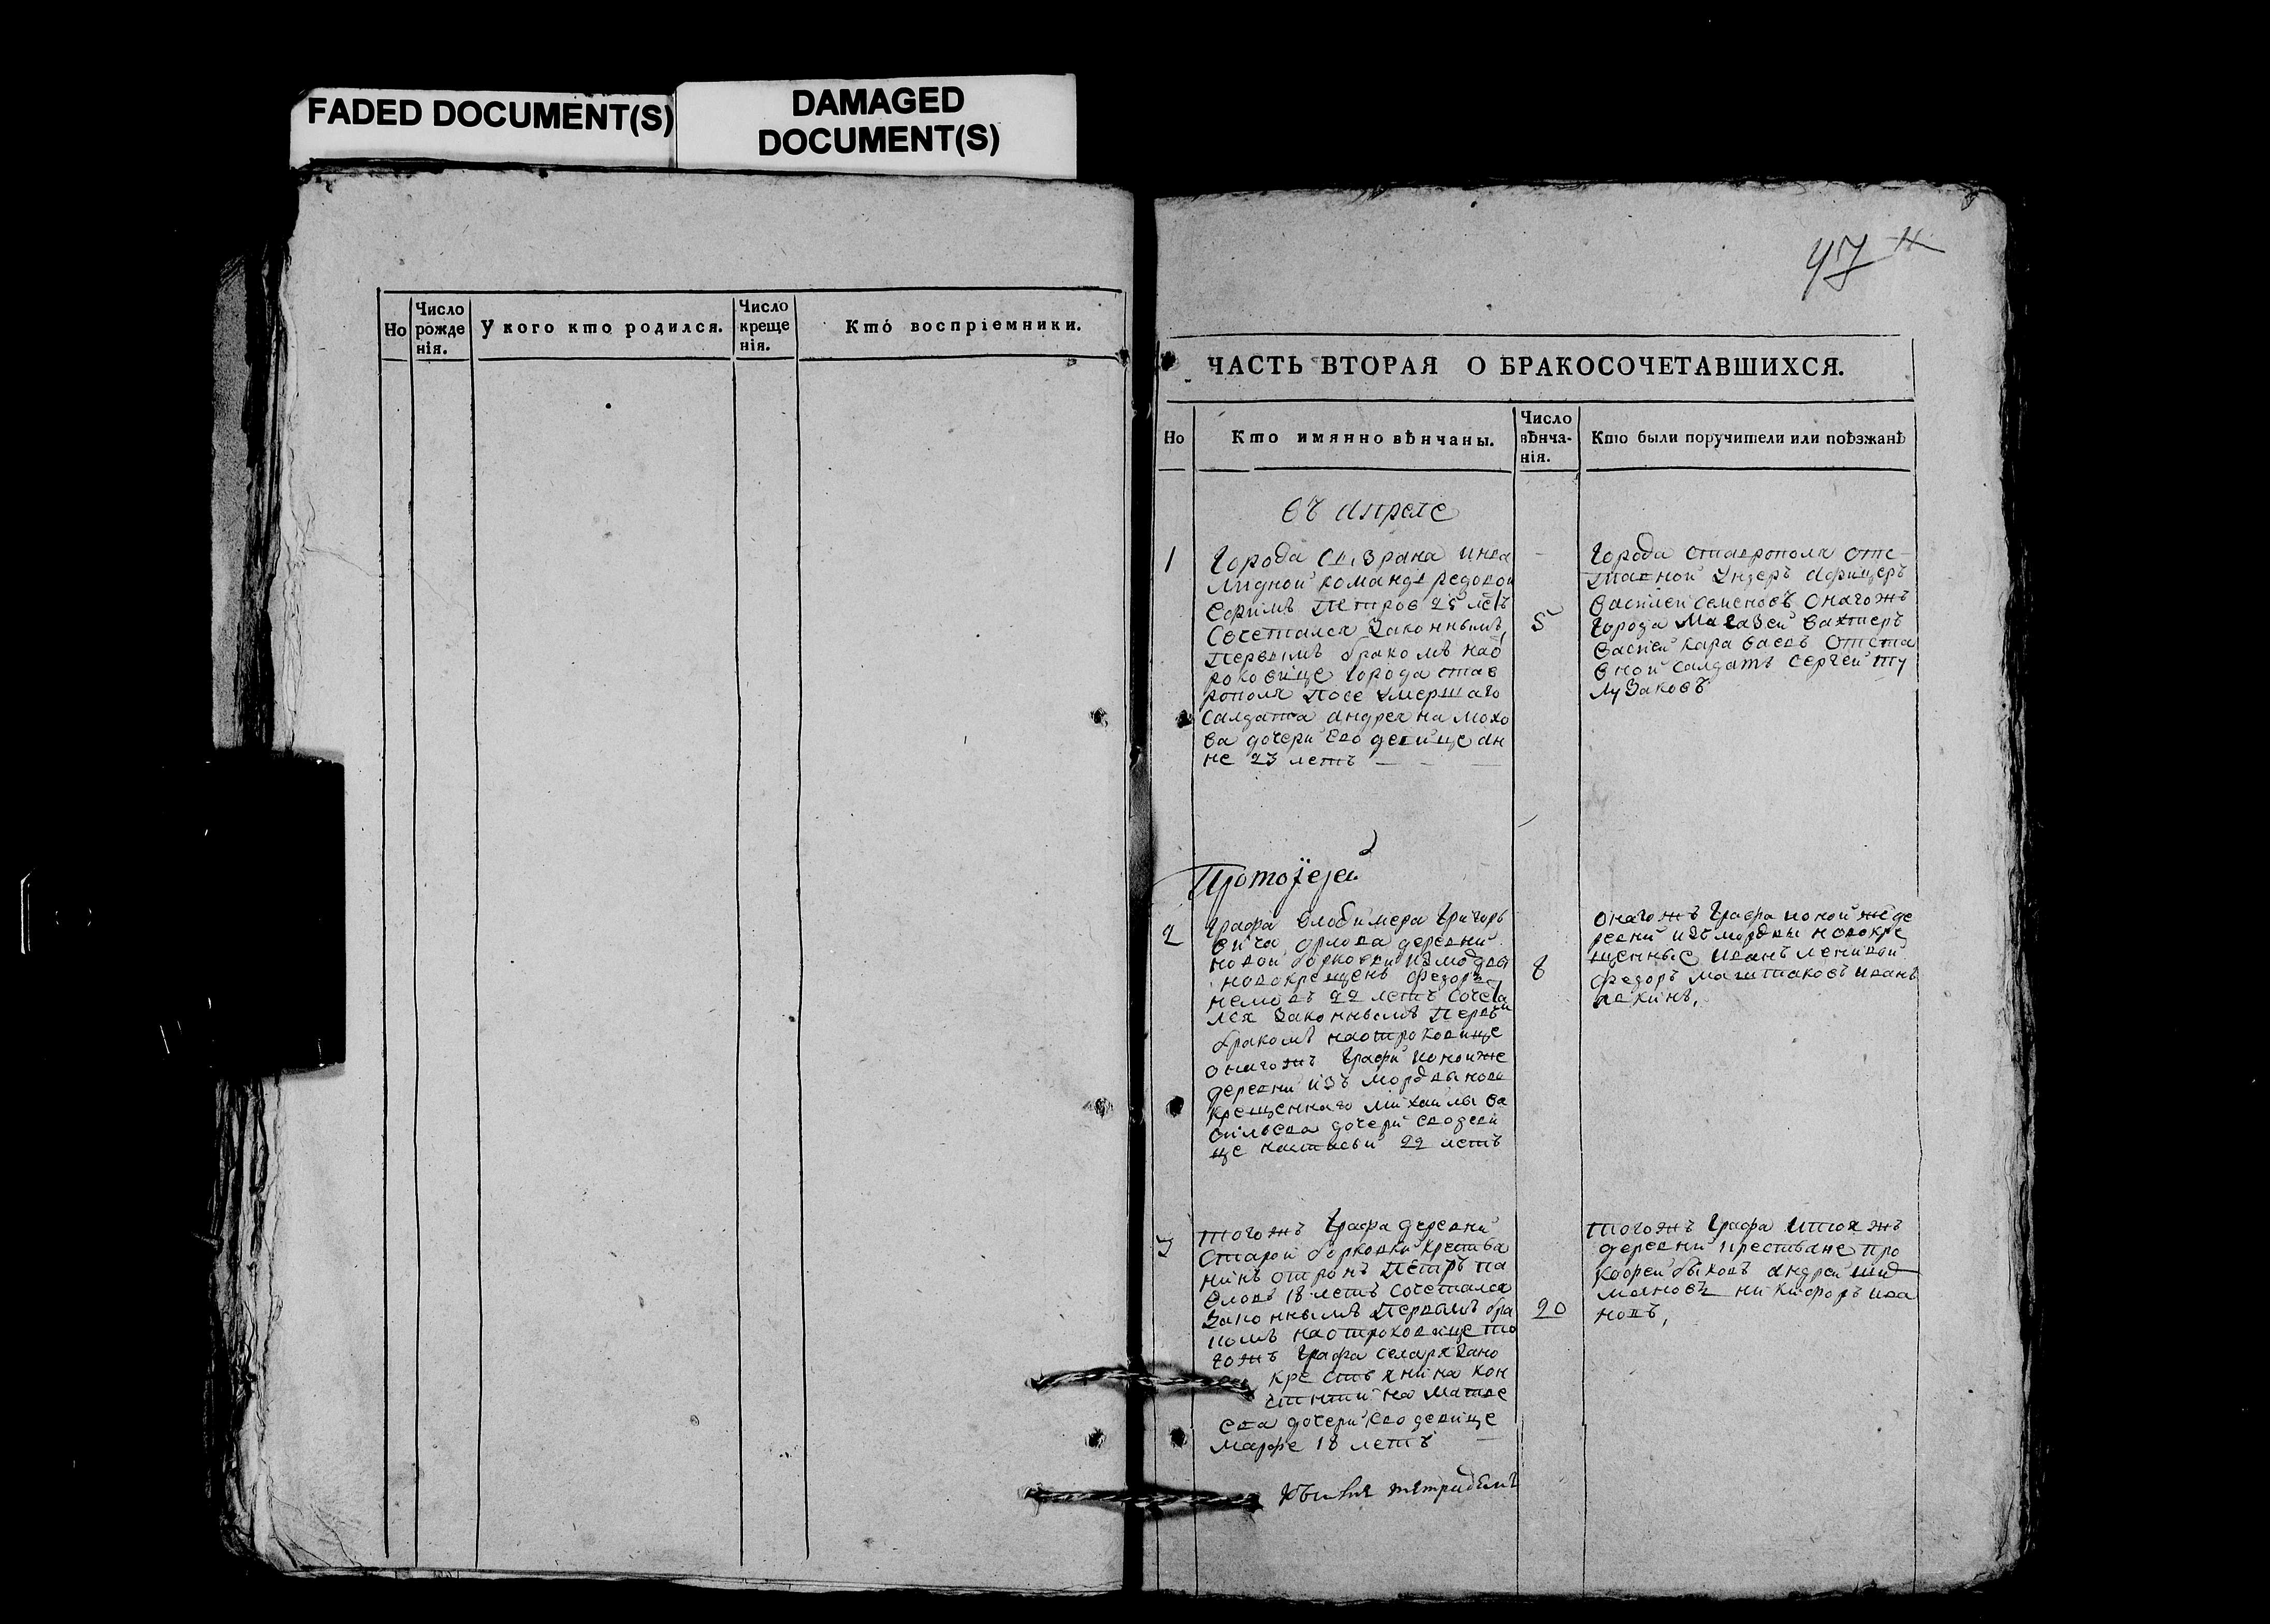 FADED DOCUMENT(S)
DAMAGED
DOCUMENT(S)
Но
Число
рожде
нія.
У кого кто родился.
Число
креще
нія.
Кто воспріемники.
47
ЧАСТЬ ВТОРАЯ О БРАКОСОЧЕТАВШИХСЯ.
Но
Кто имянно вѣнчаны.
Число
вѣнча-
нія.
Кто были поручители или поѣзжанѣ
въ апреле
1
Города Сызрана инва
лидной команды редовой
Ефимъ Петров 25 летъ
Сочетался законнымъ
первымъ бракомъ на о
роковице города став
рополя после умершаго
салдата андреяна мохо
ва дочери ево девице ан
не 23 летъ
5
Города ставрополя отс
тавной ундеръ афицеръ
василей семеновъ онагожъ
города магазей вахтеръ
васілей караваевъ отста
вной салдатъ сергей ту
лузаковъ
Протоіерей
2
Графа владимера григорь
вича орлова деревни
новой борковки из модвы
новокрещенъ федоръ
немовъ 22 летъ сочета
лся законнымъ первы
бракомъ наотроковице
онагожъ графа ионойже
деревни изъ мордвы ново
крещеннаго михаилы ва
сильева дочери ево деви
це настасьи 22 летъ
8
онагожъ графа ионой же де
ревни изъ мордвы новокре
щенные иванъ ленивой
федоръ маштаковъ иванъ
3
тогожъ графа деревни
старой борковки крестья
нинъ отрокъ петръ па
вловъ 18 летъ сочетался
законнымъ первымъ бра
комъ наотроковице то
гожъ графа села рязано
крестьянина кон
стнтина матве
ева дочери ево девице
марфе 18 летъ
20
тогожъ графа итояжъ
деревни крестьяне про
кофей быковъ андрей
никифоръ ива
новъ,